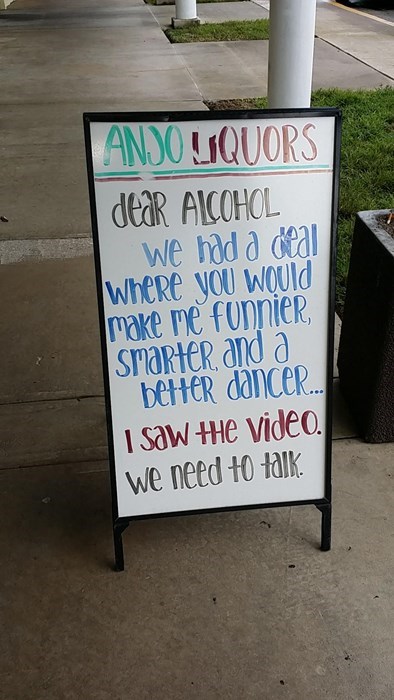 ANJO LIQUORS
dear ALCOHOL
we had a deal
where you would
make me funnier,
smarter, and a
better dancer...
I saw the video.
we need to talk.